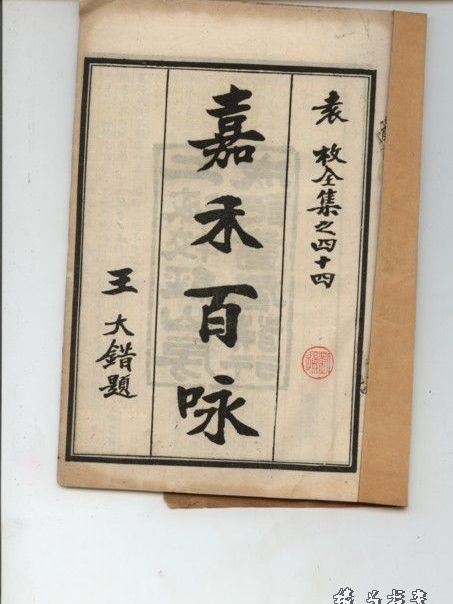 袁枚全集之四十四
嘉禾百咏
王大错题